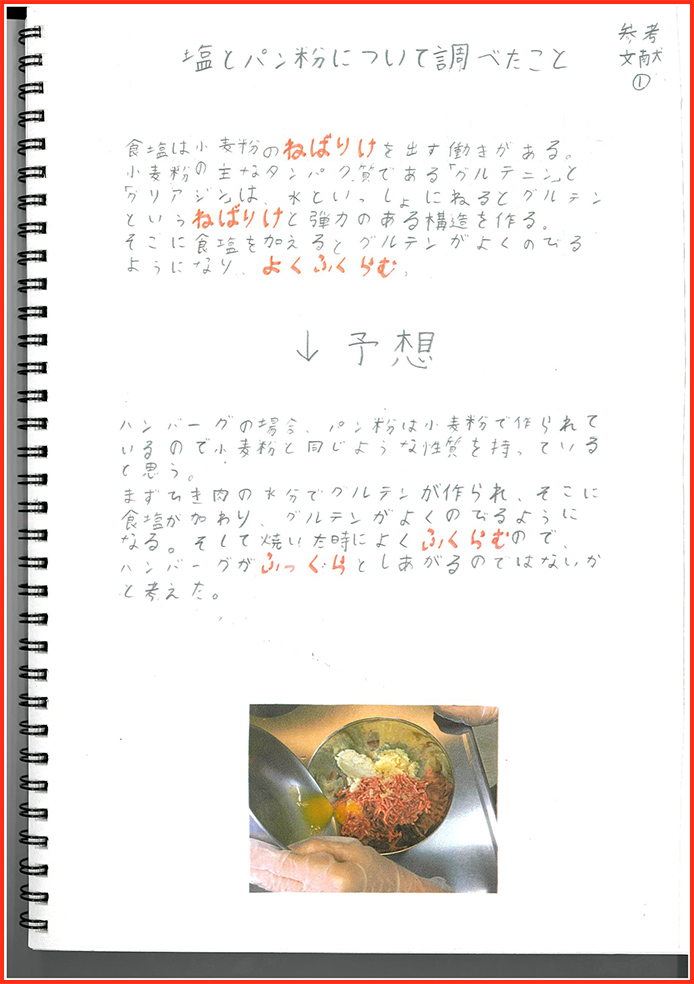 参考
文献
①
塩とパン粉について調べたこと
食塩は小麦粉のねばりけを出す働きがある。
小麦粉の主なタンパク質である「グルテニン」と
「グリアジン」は、水といっしょにねるとグルテン
というねばりけと弾力のある構造を作る。
そこに食塩を加えるとグルテンがよくのびる
ようになり、よくふくらむ。
↓予想
ハンバーグの場合、パン粉は小麦粉で作られて
いるので小麦粉と同じような性質を持っている
と思う。
まずひき肉の水分でグルテンが作られ、そこに
食塩が加わり、グルテンがよくのびるように
なる。そして焼いた時によくふくらむので、
ハンバーグがふっくらとしあがるのではないか
と考えた。